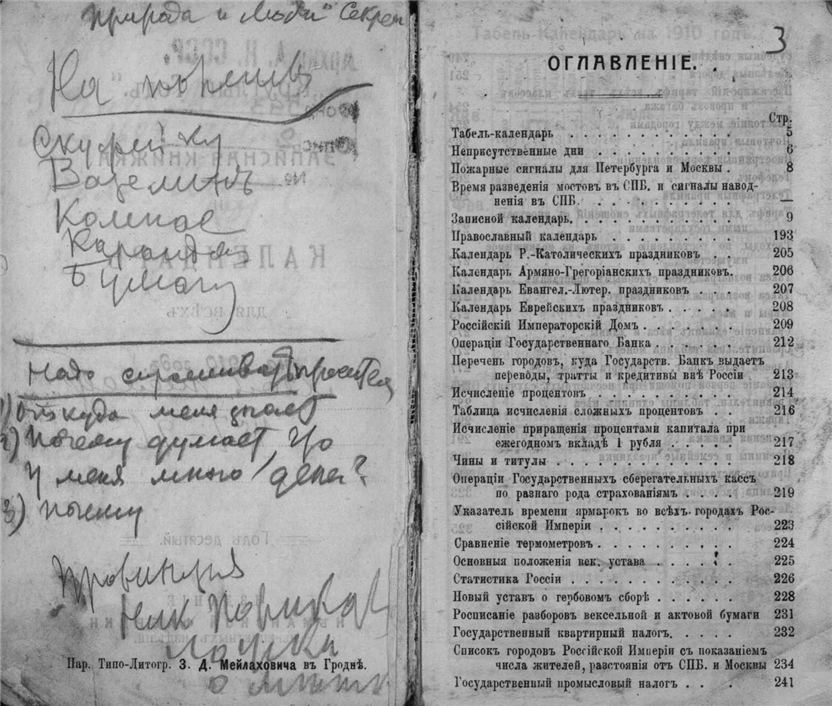 Природа и Люди" Секрет
На
Скуфейку
Вазелинъ
Компас
Карандаш
Бумагу
Надо спрашивать
1) Откуда меня знает
2) Почему думает что
у меня много денег?
3) Почему
Провинция
Ник
Пар. Типо-Литогр. З. Д. Мейлаховича въ Гроднѣ.
3
ОГЛАВЛЕНІЕ.
Стр.
Табель-календарь . . . . . . . . . . . . 5
Неприсутственные дни . . . . . . . . . . 6
Пожарные сигналы для Петербурга и Москвы . 8
Время разведенія мостовъ въ СПБ. и сигналы навод-
ненія въ СПБ. . . . . . . . . . . —
Записной календарь. . . . . . . . . . . . 9
Православный календарь . . . . . . . . . 193
Календарь Р.-Католическихъ праздниковъ . . 205
Календарь Армяно-Грегоріанскихъ праздниковъ. 206
Календарь Евангел.-Лютер. праздниковъ . . . 207
Календарь Еврейскихъ праздниковъ . . . . . 208
Россійскій Императорскій Домъ . . . . . . 209
Операціи Государственнаго Банка . . . . . . 212
Перечень городовъ, куда Государств. Банкъ выдаетъ
переводы, тратты и кредитивы внѣ Россіи 213
Исчисленіе процентовъ . . . . . . . . . . 214
Таблица исчисленія сложныхъ процентовъ . . 216
Исчисленіе приращенія процентами капитала при
ежегодномъ вкладѣ 1 рубля . . . . . . 217
Чины и титулы . . . . . . . . . . . . . 218
Операціи Государственныхъ сберегательныхъ кассъ
по разнаго рода страхованіямъ . . . . 219
Указатель времени ярмарокъ во всѣхъ городахъ Рос-
сійской Имперіи . . . . . . . . . . 223
Сравненіе термометровъ . . . . . . . . . 224
Основныя положенія век. устава . . . . . . 225
Статистика Россіи . . . . . . . . . . . . 226
Новый уставъ о гербовомъ сборѣ . . . . . 228
Росписаніе разборовъ вексельной и актовой бумаги 231
Государственный квартирный налогъ. . . . . 232
Списокъ городовъ Россійской Имперіи съ показаніемъ
числа жителей, разстоянія отъ СПБ. и Москвы 234
Государственный промысловый налогъ . . . . 241